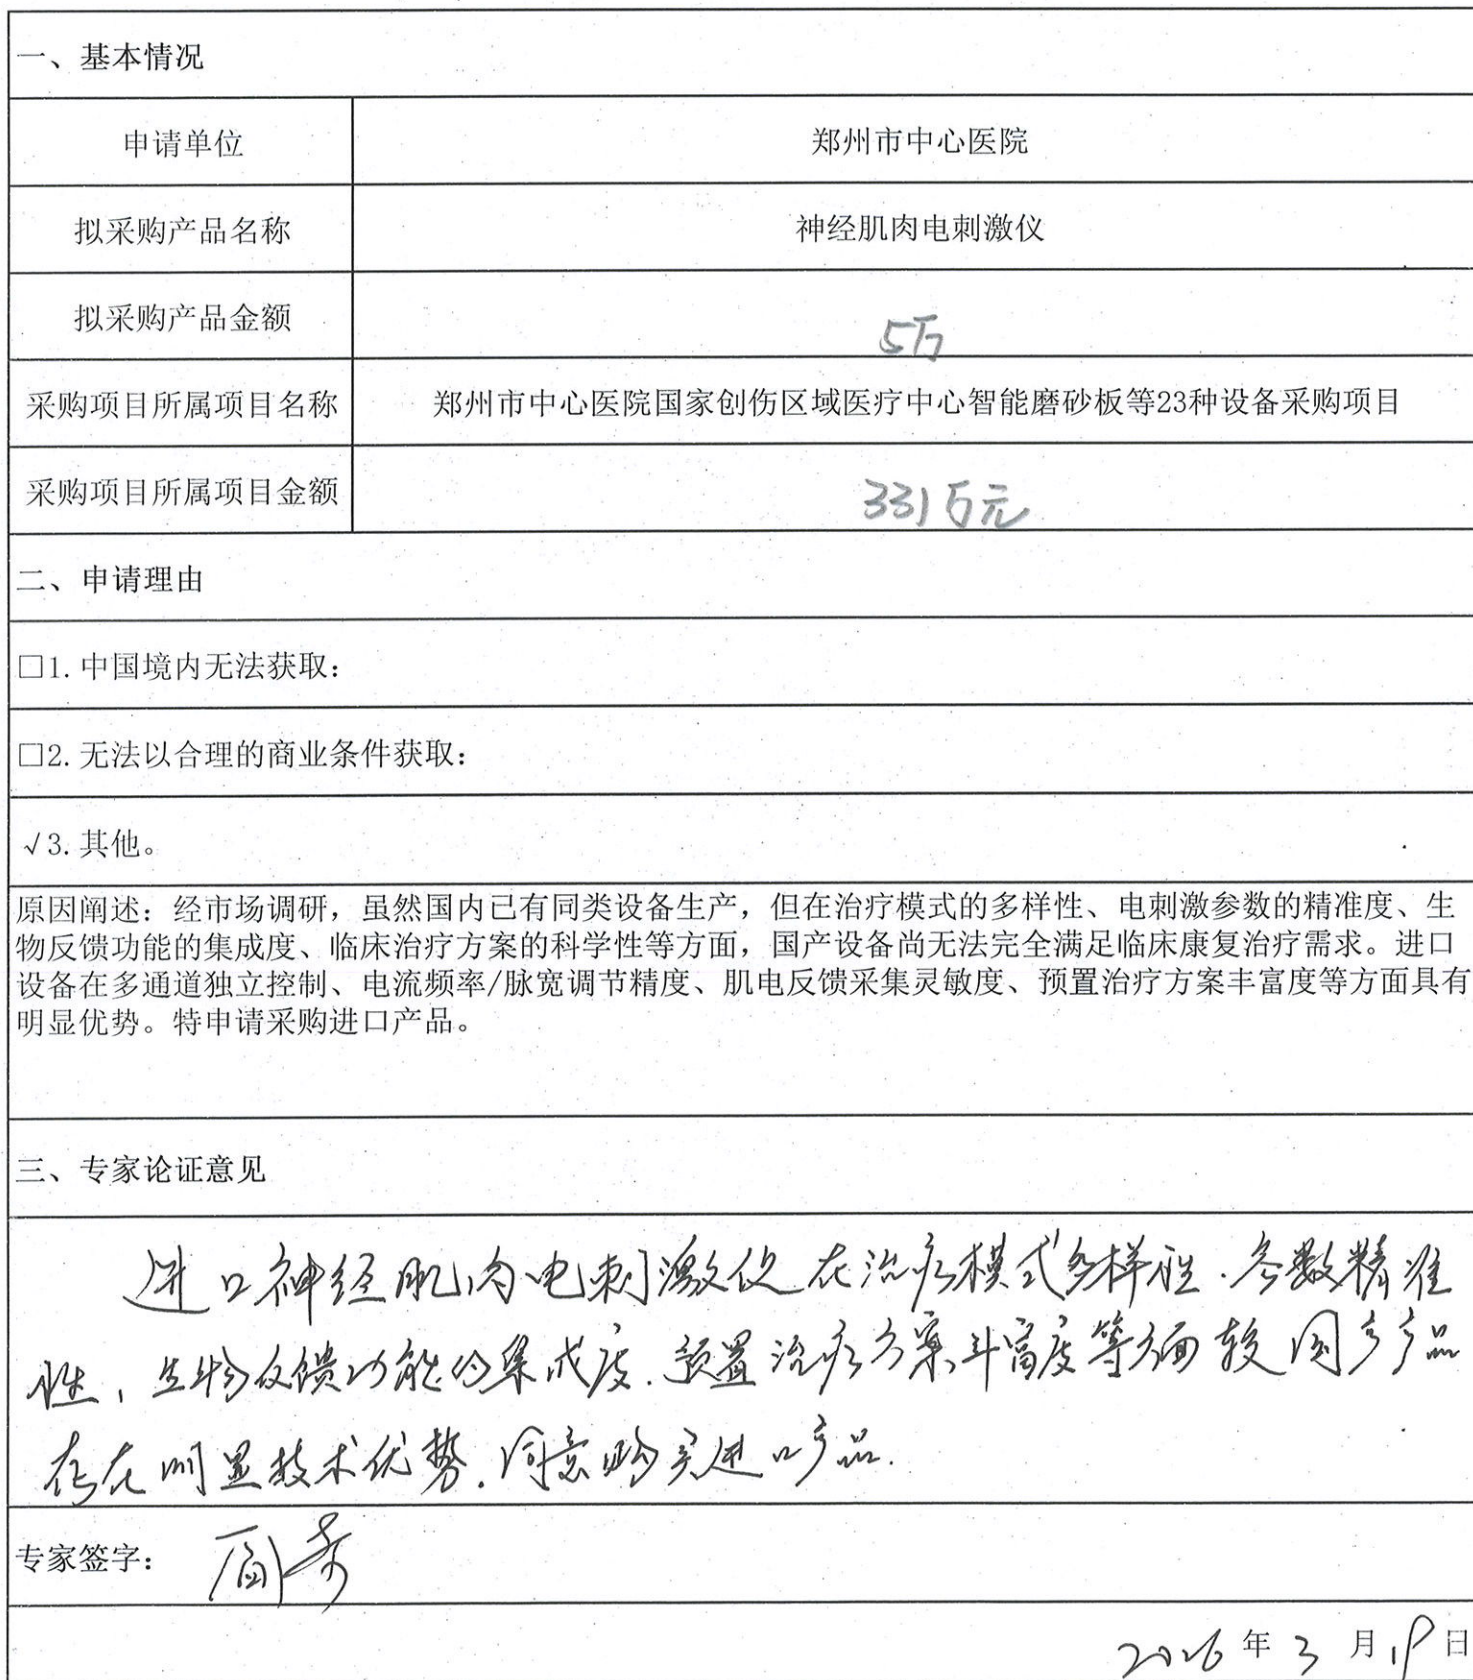 一、基本情况
申请单位 郑州市中心医院
拟采购产品名称 神经肌肉电刺激仪
拟采购产品金额 5万
采购项目所属项目名称 郑州市中心医院国家创伤区域医疗中心智能磨砂板等23种设备采购项目
采购项目所属项目金额 331万元
二、申请理由
□1.中国境内无法获取：
□2.无法以合理的商业条件获取：
√3.其他。
原因阐述：经市场调研，虽然国内已有同类设备生产，但在治疗模式的多样性、电刺激参数的精准度、生
物反馈功能的集成度、临床治疗方案的科学性等方面，国产设备尚无法完全满足临床康复治疗需求。进口
设备在多通道独立控制、电流频率/脉宽调节精度、肌电反馈采集灵敏度、预置治疗方案丰富度等方面具有
明显优势。特申请采购进口产品。
三、专家论证意见
进口神经肌肉电刺激仪在治疗模式多样性、参数精准
性、生物反馈功能的集成度、预置治疗方案丰富度等方面较国产产品
存在明显技术优势，同意购买进口产品.
专家签字：
2026年3月 日